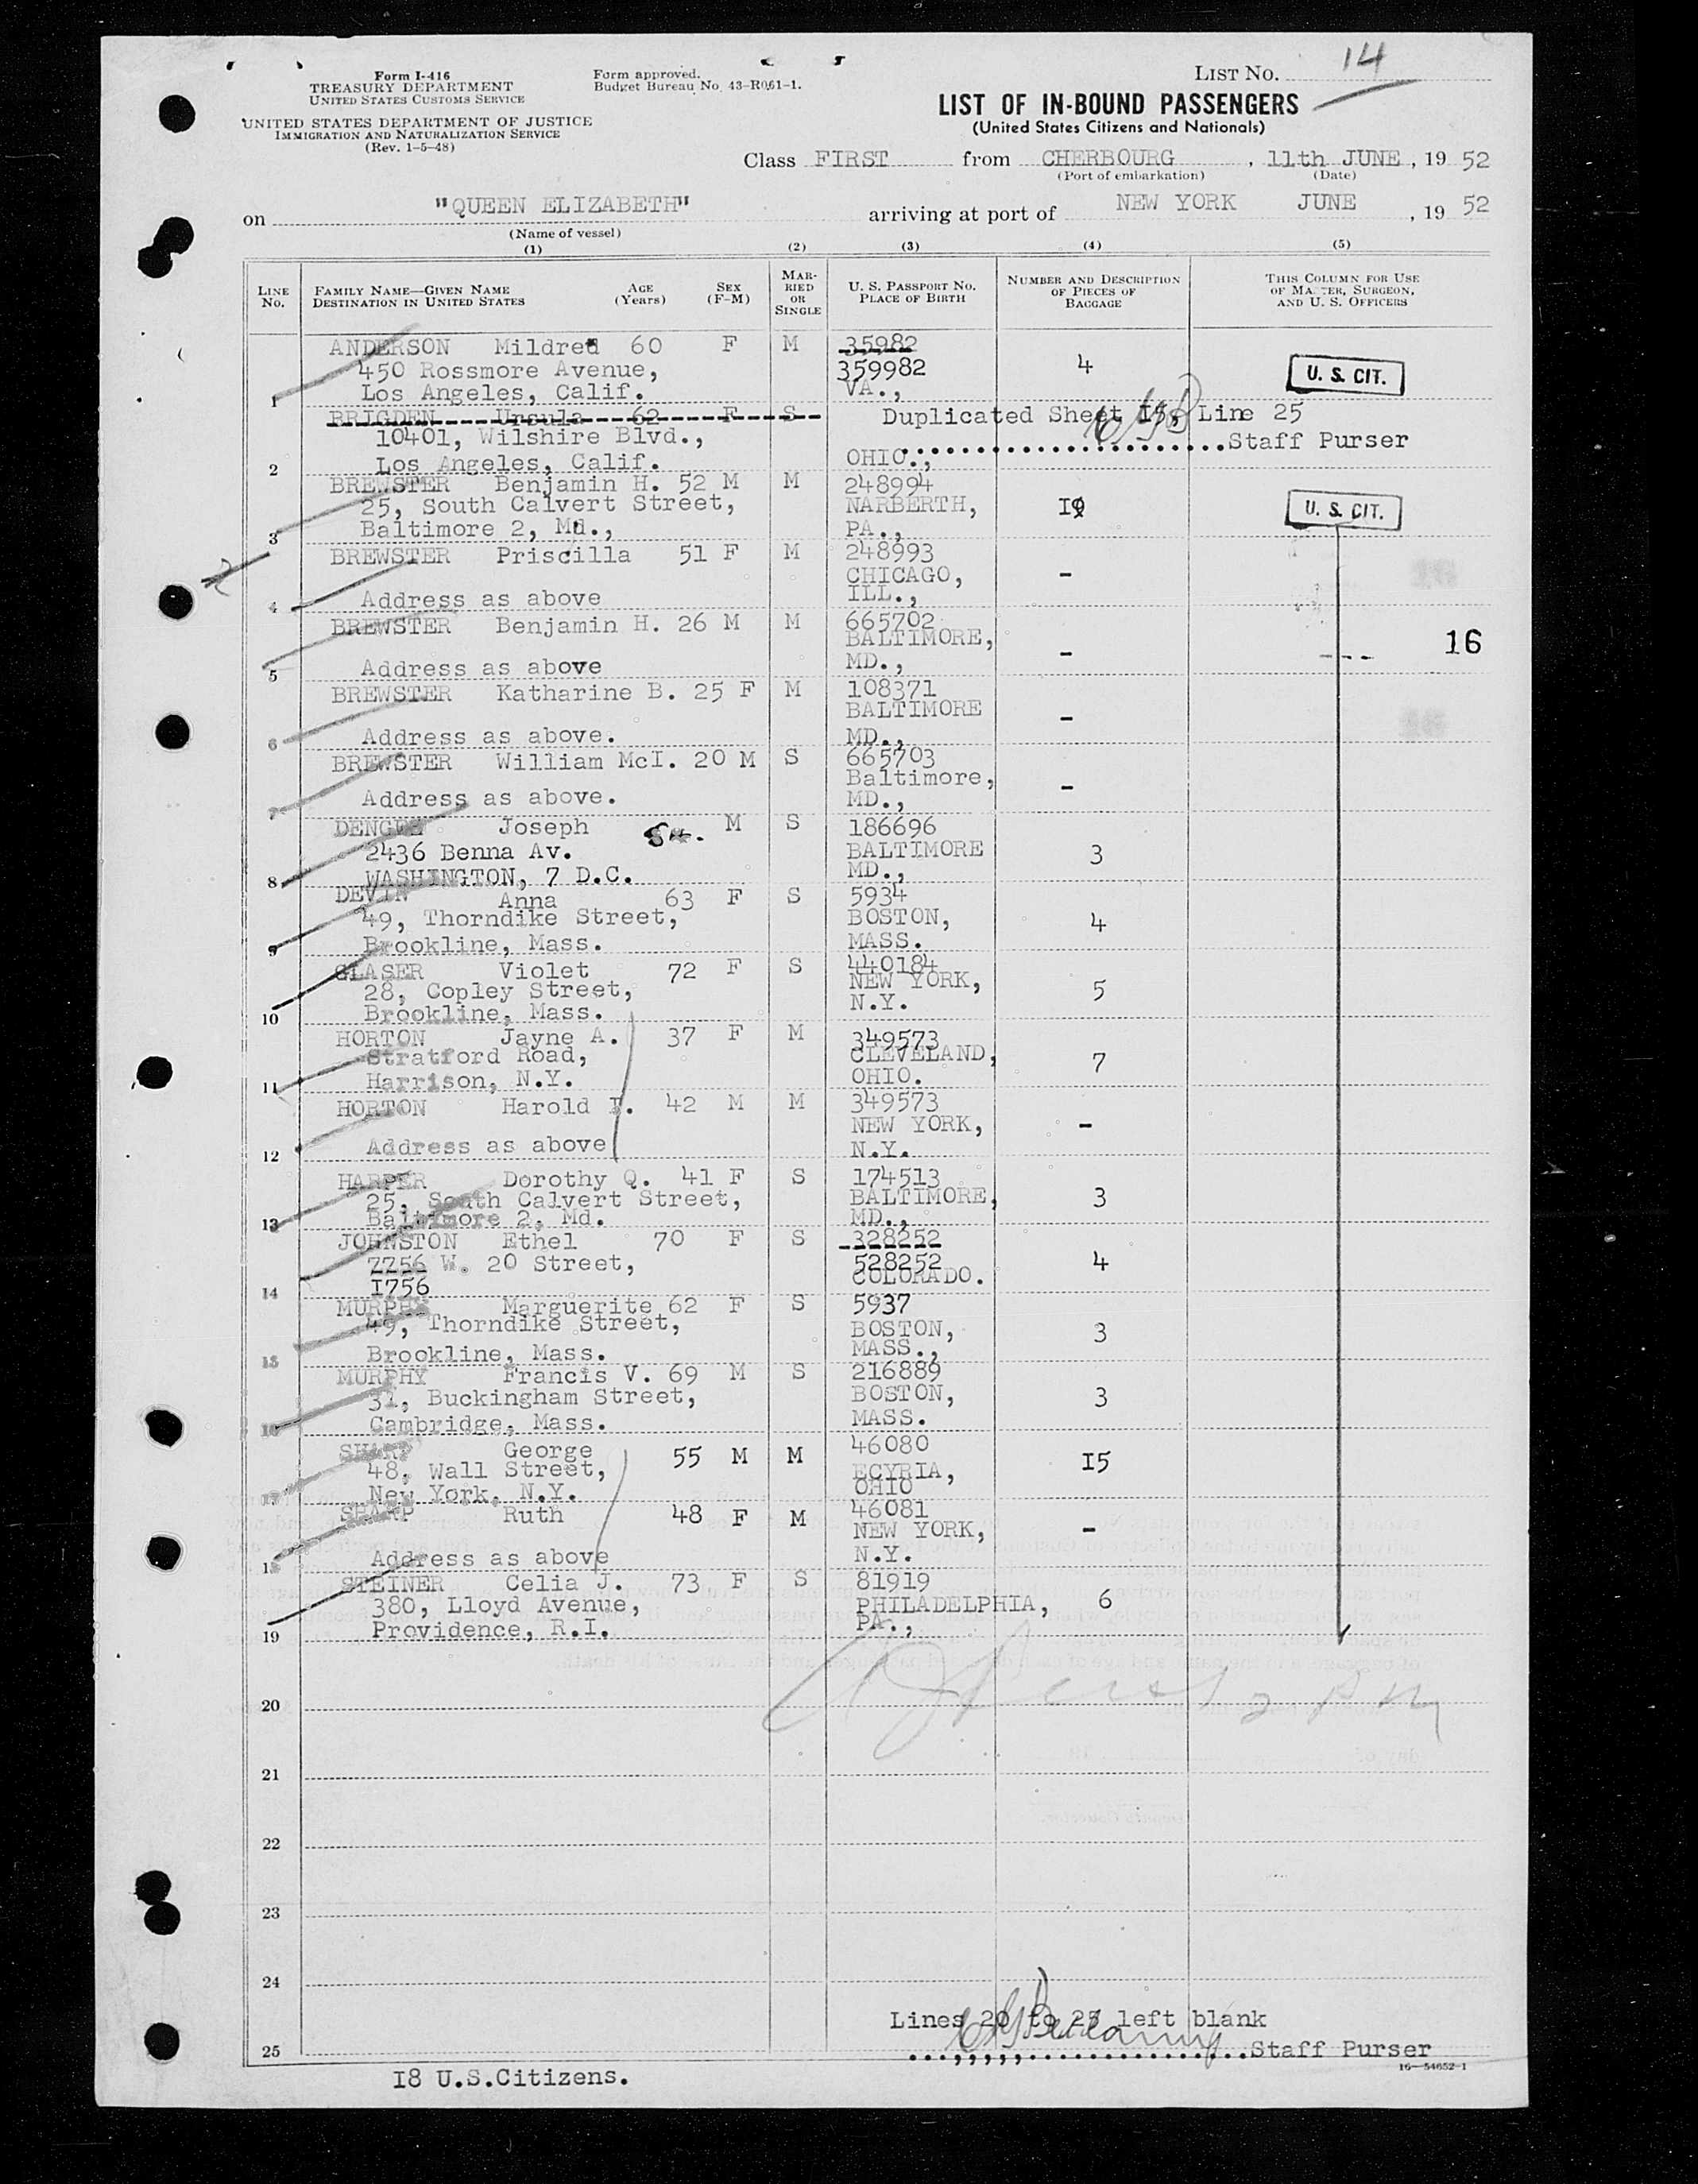 Form I-416
TREASURY DEPARTMENT
UNITED STATES CUSTOMS SERVICE
UNITED STATES DEPARTMENT OF JUSTICE
IMMIGRATION AND NATURALIZATION SERVICE
(Rev. 1-5-48)
Form approved.
Budget Bureau No. 43-R061-1.
LIST NO. 14
LIST OF IN-BOUND PASSENGERS
(United States Citizens and Nationals)
Class FIRST from CHERBOURG, 11th JUNE, 19 52
(Port of embarkation) (Date)
on "QUEEN ELIZABETH" arriving at port of NEW YORK JUNE, 19 52
(Name of vessel)
(1) (2) (3) (4) (5)
LINE NO. FAMILY NAME—GIVEN NAME DESTINATION IN UNITED STATES AGE (Years) SEX (F-M) MARRIED OR SINGLE U. S. PASSPORT NO. PLACE OF BIRTH NUMBER AND DESCRIPTION OF PIECES OF BAGGAGE THIS COLUMN FOR USE OF MASTER, SURGEON, AND U. S. OFFICERS
ANDERSON Mildred 60 F M 35982
450 Rossmore Avenue, 359982 4 U. S. CIT.
1 Los Angeles, Calif. VA.,
BRIGDEN Ursula 62 F S Duplicated Sheet 15, Line 25
10401, Wilshire Blvd., Staff Purser
2 Los Angeles, Calif. OHIO.,
BREWSTER Benjamin H. 52 M M 248994
25, South Calvert Street, NARBERTH, 19 U. S. CIT.
3 Baltimore 2, Md., PA.,
BREWSTER Priscilla 51 F M 248993
CHICAGO, -
4 Address as above ILL.,
BREWSTER Benjamin H. 26 M M 665702
BALTIMORE, - 16
5 Address as above MD.,
BREWSTER Katharine B. 25 F M 108371
BALTIMORE -
6 Address as above. MD.,
BREWSTER William McI. 20 M S 665703
Baltimore, -
7 Address as above. MD.,
Joseph M S 186696
2436 Benna Av. BALTIMORE 3
8 WASHINGTON, 7 D.C. MD.,
DEVIN Anna 63 F S 5934
49, Thorndike Street, BOSTON, 4
9 Brookline, Mass. MASS.
GLASER Violet 72 F S 440184
28, Copley Street, NEW YORK, 5
10 Brookline, Mass. N.Y.
HORTON Jayne A. 37 F M 349573
Stratford Road, CLEVELAND, 7
11 Harrison, N.Y. OHIO.
HORTON Harold 42 M M 349573
NEW YORK, -
12 Address as above N.Y.
HARPER Dorothy Q. 41 F S 174513
25, South Calvert Street, BALTIMORE, 3
13 Baltimore 2, Md. MD.,
JOHNSTON Ethel 70 F S 328252
7756 W. 20 Street, 528252 4
14 1756 COLORADO.
MURPHY Marguerite 62 F S 5937
49, Thorndike Street, BOSTON, 3
15 Brookline, Mass. MASS.,
MURPHY Francis V. 69 M S 216889
31, Buckingham Street, BOSTON, 3
16 Cambridge, Mass. MASS.
SHARP George 55 M M 46080
48, Wall Street, ECYRIA, 15
17 New York, N.Y. OHIO
SHARP Ruth 48 F M 46081
NEW YORK, -
18 Address as above N.Y.
STEINER Celia J. 73 F S 81919
380, Lloyd Avenue, PHILADELPHIA, 6
19 Providence, R.I. PA.,
20
21
22
23
24
Lines 20 to 25 left blank
25 Staff Purser
16—54652-1
18 U.S.Citizens.